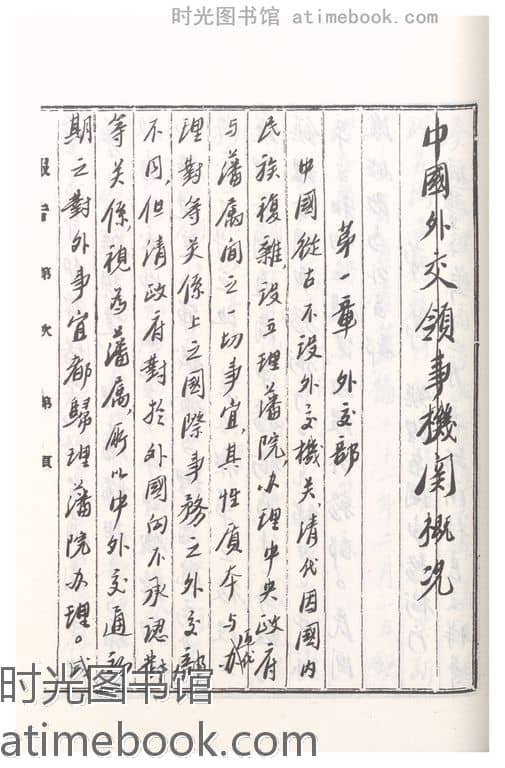 时光图书馆 atimebook.com
中國外交領事機関概况
第一章 外交部
中國從古不设外交機关清代因國内
民族複雜，设立理藩院，办理中央政府
与藩属间之一切事宜，其性质本与近代办
理對等关係上之國際事務之外交部
不同，但清政府對於外國向不承認對
等关係，視為藩属，所以中外交通初
期之對外事宜都歸理藩院办理。咸
報告 第 次 第 頁
时光图书馆
atimebook.com